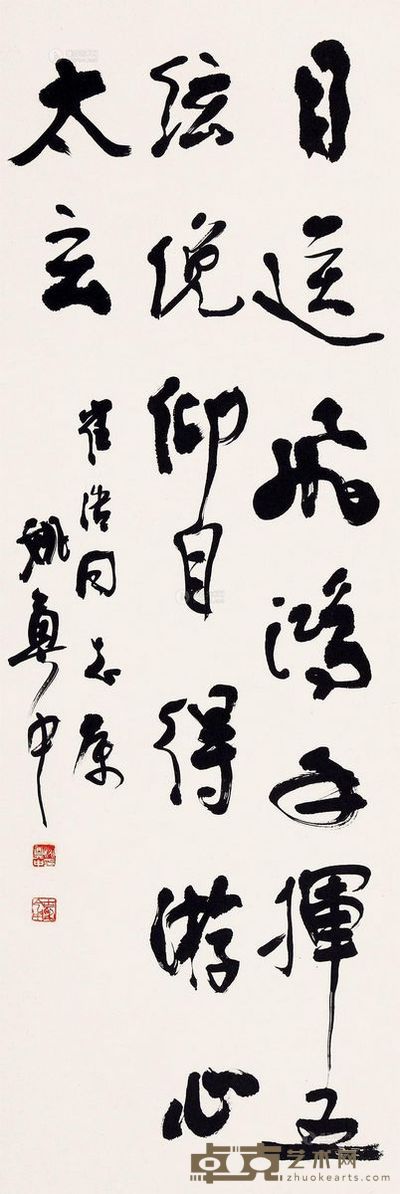 目送飛鴻手揮五
絃俛仰自得游心
太玄
崔浩同志属
姚奠中
卓克艺术网
zhuokearts.com